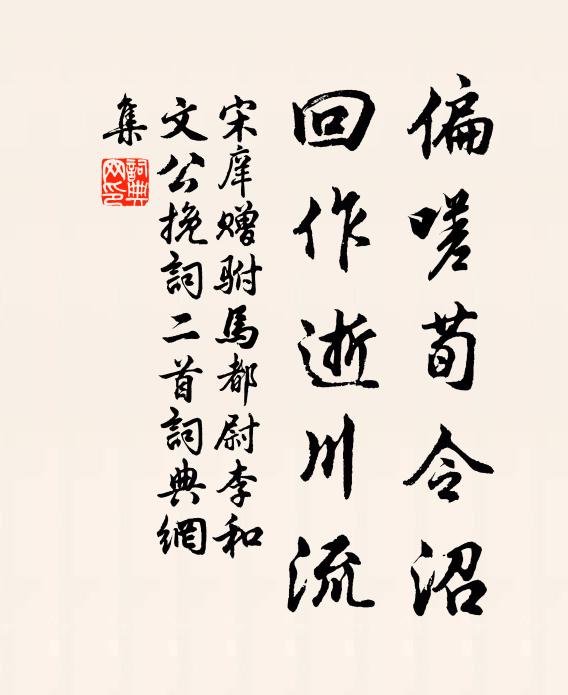 偏嗟荀令沼
回作逝川流
宋庠赠駙馬都尉李和
文公挽詞二首詞典網
集
詞典
网印